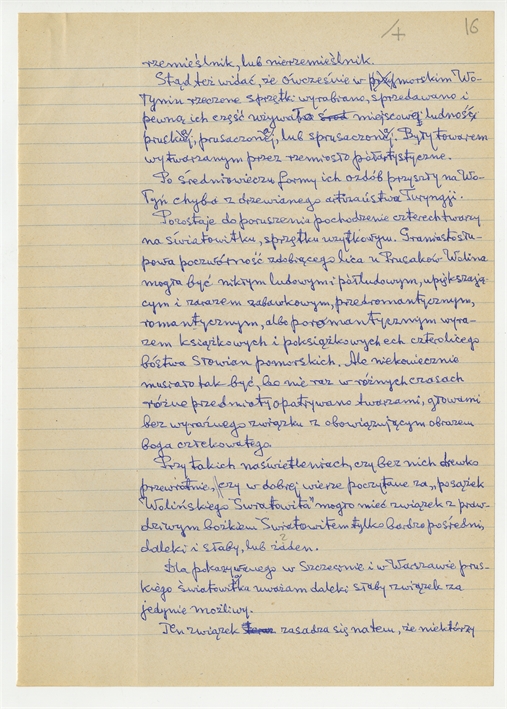 16
rzemieślnik, lub nierzemieślnik.
Stąd też widać, że ówcześnie w przymorskim Wo-
łyniu rzeczone sprzętki wyrobiano, sprzedawano i
pewną ich część używała miejscowej ludność
pruskiej, prusaczonej, lub sprusaczonej. Były towarem
wytwarzanym przez rzemiosło półartystyczne.
Po średniowieczu formy ich ozdób przyszły na Wo-
łyń chyba z drzewianego artizaństwa Turyngji.
Pozostaje do poruszenia pochodzenie czterech twarzy
na światowitku, sprzętku użytkowym. Graniastosłu-
powa poczwórność zdobiącego lica u Prusaków Wolina
mogła być nikłym ludowym i półludowym, upiększają-
cym i zarazem zabawkowym, przedromantycznym,
romantycznym, albo poromantycznym wyra-
zem książkowych i poksiążkowych ech czterolicego
bóstwa Słowian pomorskich. Ale niekoniecznie
musiało tak być, bo nie raz w różnych czasach
różne przedmioty opatrywano twarzami, głowami
bez wyraźnego związku z obowiązującym obrazem
boga człekowatego.
Przy takich naświetleniach, czy bez nich drewko
przewrotnie, czy w dobrej wierze poczytane za „posążek
Wolińskiego Światowita" mogło mieć związek z praw-
dziwym bożkiem Światowitem tylko bardzo pośredni,
daleki i słaby, lub żaden.
Dla pokazywanego w Szczecinie i w Warszawie prus-
kiego światowitka uważam daleki słaby związek za
jedynie możliwy.
Ten związek zasadza się na tem, że niektórzy